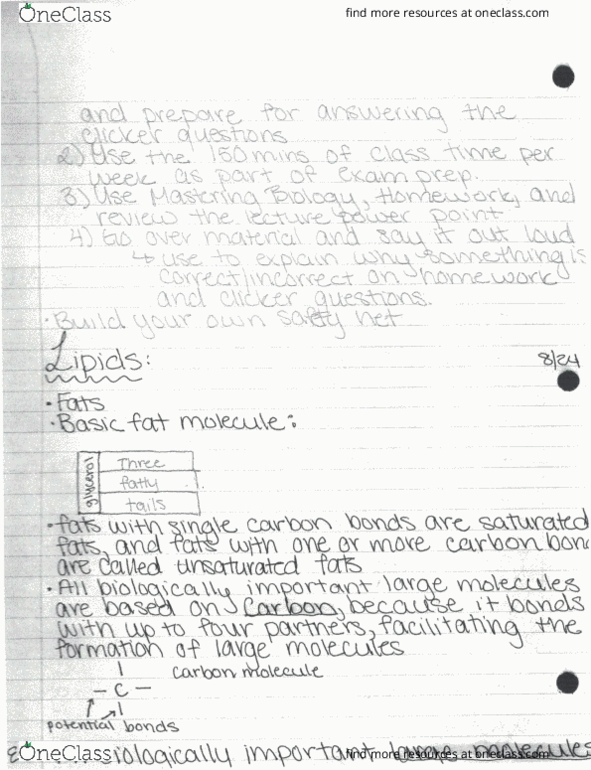 OneClass
find more resources at oneclass.com
and prepare for answering the
clicker questions
2) Use the 150 mins of class time per
week as part of exam prep.
3) Use Mastering Biology, Homework, and
review the lecture power point
4) Go over material and say it out loud
↳ use to explain why something is
correct/incorrect on homework
and clicker questions.
· Build your own safety net
Lipids: 8/24
· Fats
· Basic fat molecule:
glycerol
Three
fatty
tails
· fats with single carbon bonds are saturated
fats, and fats with one or more carbon bon
are called unsaturated fats
· All biologically important large molecules
are based on Carbon, because it bonds
with up to four partners, facilitating the
formation of large molecules
carbon molecule
- C -
potential bonds
OneClass
biologically important large molecules
find more resources at oneclass.com